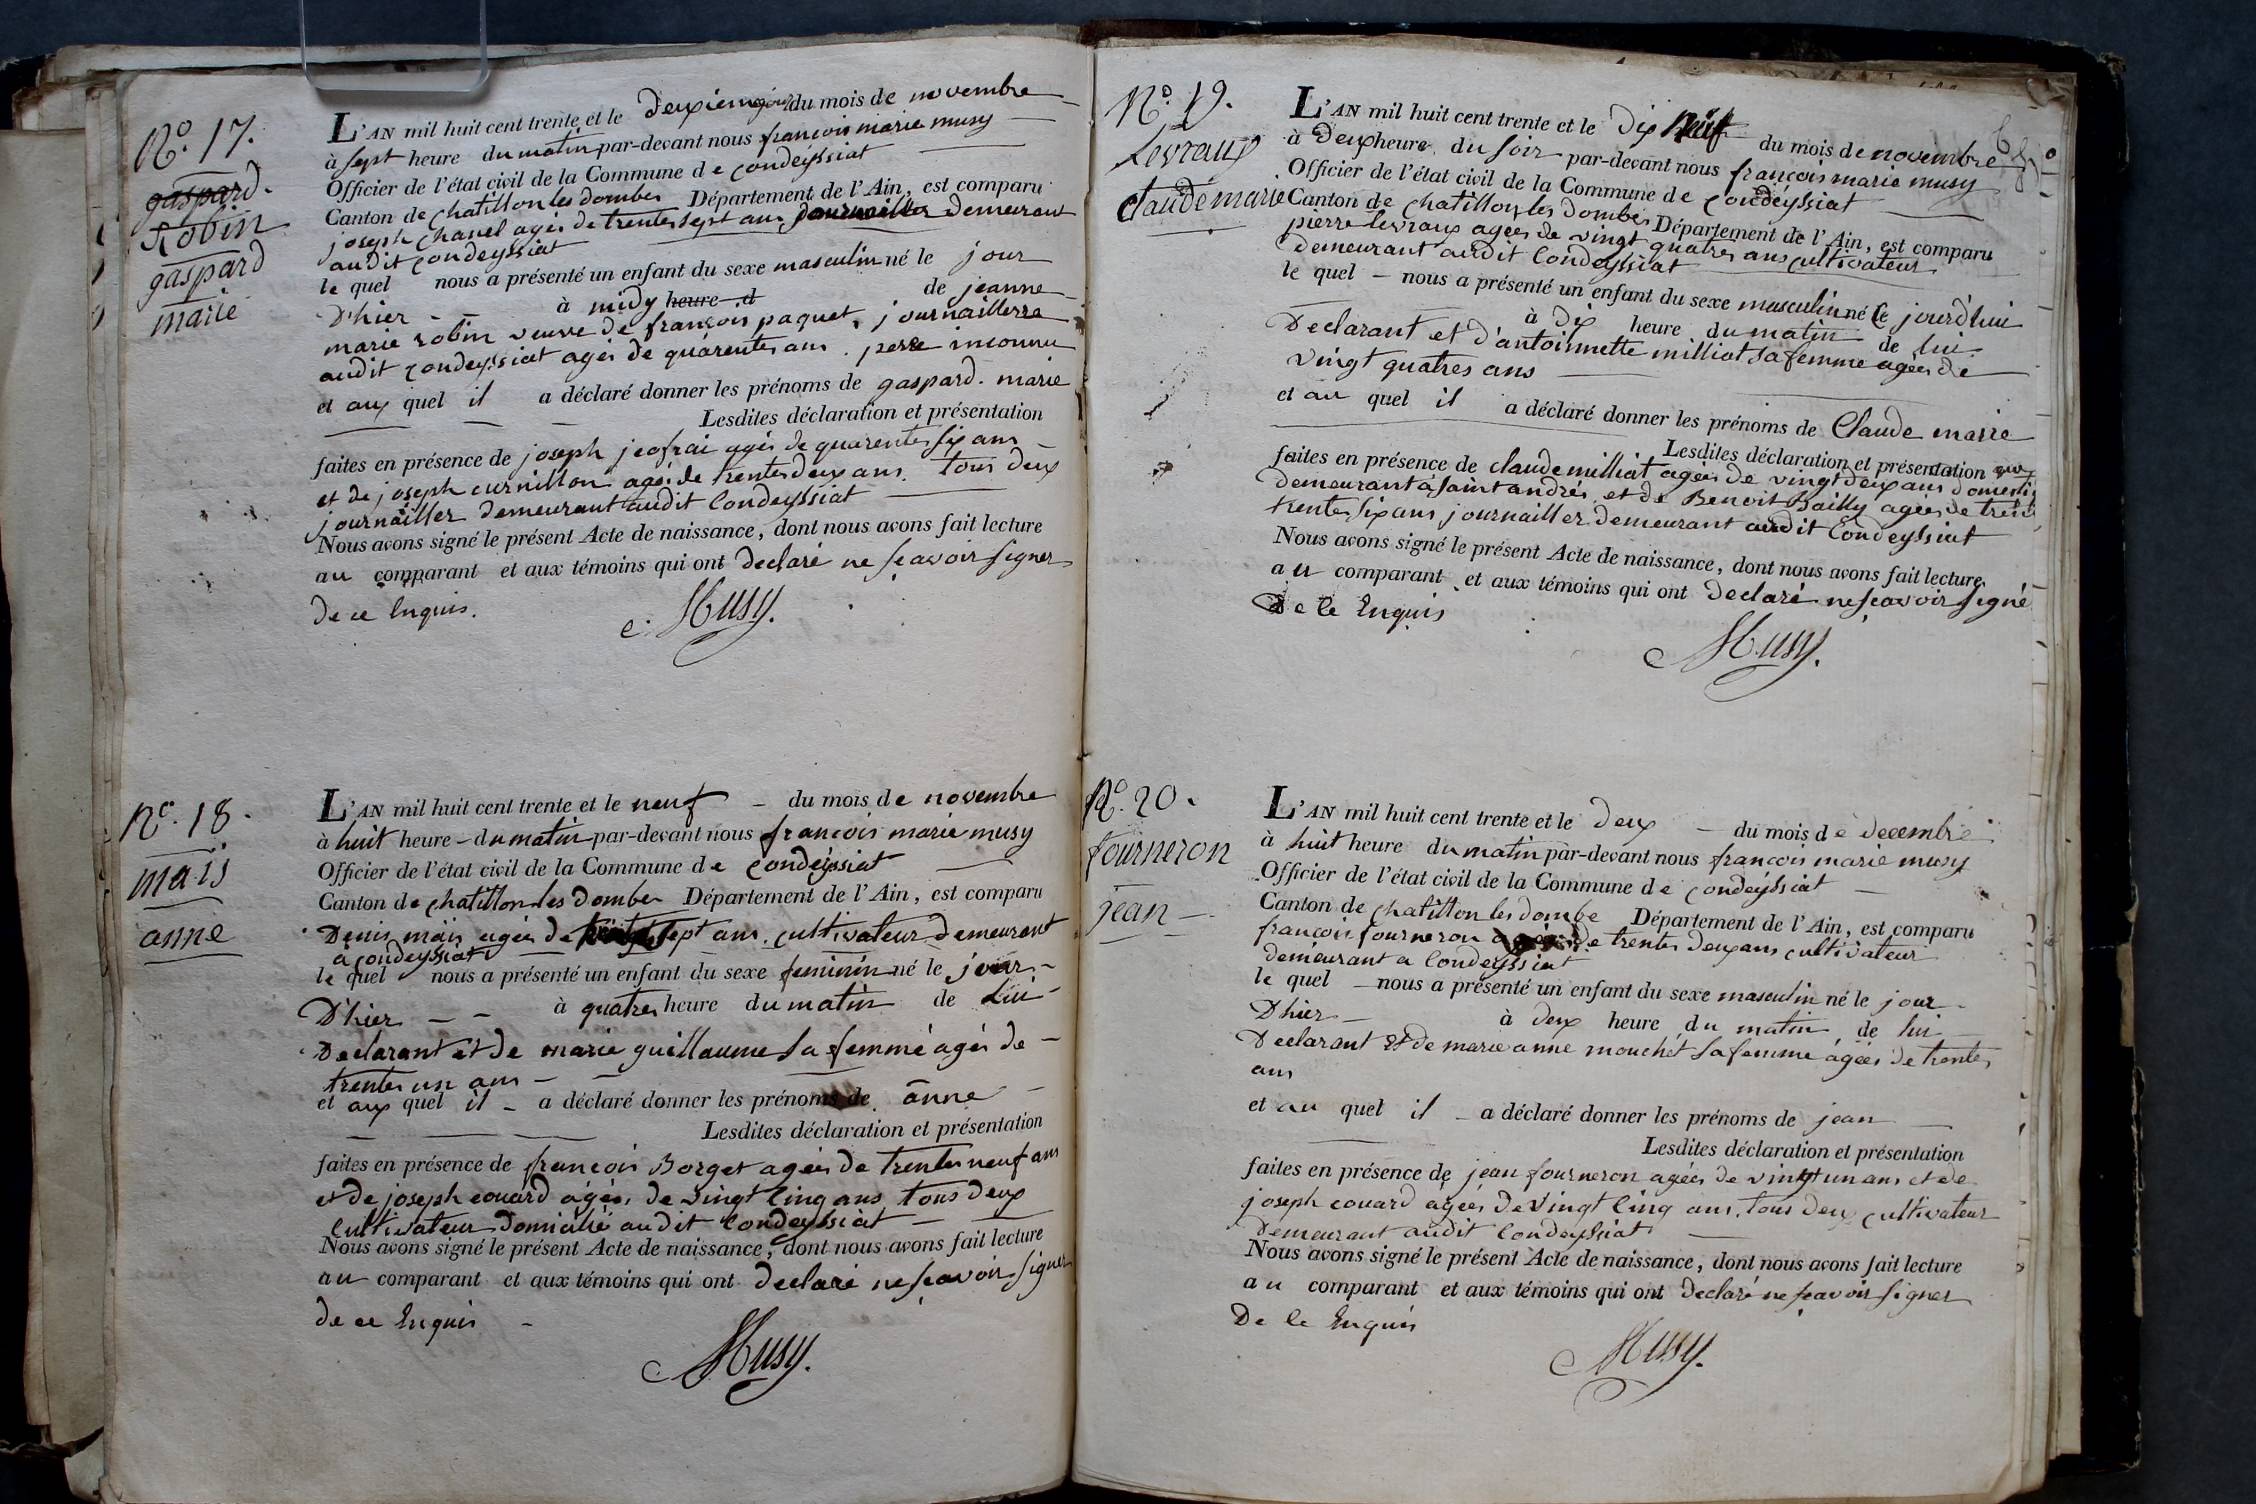 N.o 17.
gaspard.
Robin
gaspard
marie
L'AN mil huit cent trente et le deuxieme jour du mois de novembre
à sept heure du matin par-devant nous françois marie musy
Officier de l'état civil de la Commune de Condeyssiat
Canton de chatillon les dombes Département de l'Ain, est comparu
joseph chanel agés de trentes sept ans journailler demeurant
audit Condeyssiat
le quel nous a présenté un enfant du sexe masculin né le jour
D'hier à midy heure d de jeanne
marie robin veuve de françois paquet, journaillerre
audit Condeyssiat agés de quarentes ans. perre inconnu
et aux quel il a déclaré donner les prénoms de gaspard. marie
Lesdites déclaration et présentation
faites en présence de joseph jeofrai agés de quarentes six ans
et de joseph curnillon agés de trentes deux ans. tous deux
journailler demeurant audit Condeyssiat
Nous avons signé le présent Acte de naissance, dont nous avons fait lecture
au comparant et aux témoins qui ont declaré ne scavoir signer
de ce Enquis.
Musy.
N.o 18.
mais
anne
L'AN mil huit cent trente et le neuf du mois de novembre
à huit heure du matin par-devant nous françois marie musy
Officier de l'état civil de la Commune de Condeyssiat
Canton de chatillon les dombes Département de l'Ain, est comparu
Denis mais agées de sept ans. cultivateur demeurant
a Condeyssiat
le quel nous a présenté un enfant du sexe feminin né le jour
D'hier à quatres heure du matin de Lui
Declarant et de marie guillaume sa femme agés de
trentes un ans
et aux quel il a déclaré donner les prénoms de anne
Lesdites déclaration et présentation
faites en présence de françois Borget agées de trentes neuf ans
et de joseph couard agées de vingt Cinq ans tous deux
Cultivateur Domicilié audit Condeyssiat
Nous avons signé le présent Acte de naissance, dont nous avons fait lecture
au comparant et aux témoins qui ont declaré ne scavoir signer
de ce Enquis
Musy.
N.o 19.
Levraux
Claude marie
L'AN mil huit cent trente et le dix Neuf du mois de novembre
à Deux heure du soir par-devant nous françois marie musy
Officier de l'état civil de la Commune de Condeyssiat
Canton de chatillon les dombes Département de l'Ain, est comparu
pierre levraux agées de vingt quatres ans cultivateur
demeurant audit Condeyssiat
le quel nous a présenté un enfant du sexe masculin né le jourd'hui
à dix heure du matin de lui
Declarant et d'antoinnette milliat sa femme agées de
vingt quatres ans
et au quel il a déclaré donner les prénoms de Claude marie
Lesdites déclaration et présentation
faites en présence de claude milliat agées de vingt deux ans domesti
demeurant à saint andrés, et de Benoit Bailly agées de
trentes six ans journailler demeurant audit Condeyssiat
Nous avons signé le présent Acte de naissance, dont nous avons fait lecture
au comparant et aux témoins qui ont declaré ne scavoir signé
De Ce Enquis
Musy.
N.o 20.
fourneron
jean
L'AN mil huit cent trente et le deux du mois de decembre
à huit heure du matin par-devant nous françois marie musy
Officier de l'état civil de la Commune de Condeyssiat
Canton de chatillon les dombe Département de l'Ain, est comparu
françois fourneron de trentes deux ans cultivateur
demeurant a Condeyssiat
le quel nous a présenté un enfant du sexe masculin né le jour
D'hier à deux heure du matin de lui
Declarant et de marie anne mouchet sa femme agées de trentes
ans
et au quel il a déclaré donner les prénoms de jean
Lesdites déclaration et présentation
faites en présence de jean fourneron agées de vingt un ans et de
joseph couard agées de vingt Cinq ans. tous deux cultivateur
Demeurant audit Condeyssiat
Nous avons signé le présent Acte de naissance, dont nous avons fait lecture
au comparant et aux témoins qui ont declaré ne scavoir signer
De Ce Enquis
Musy.